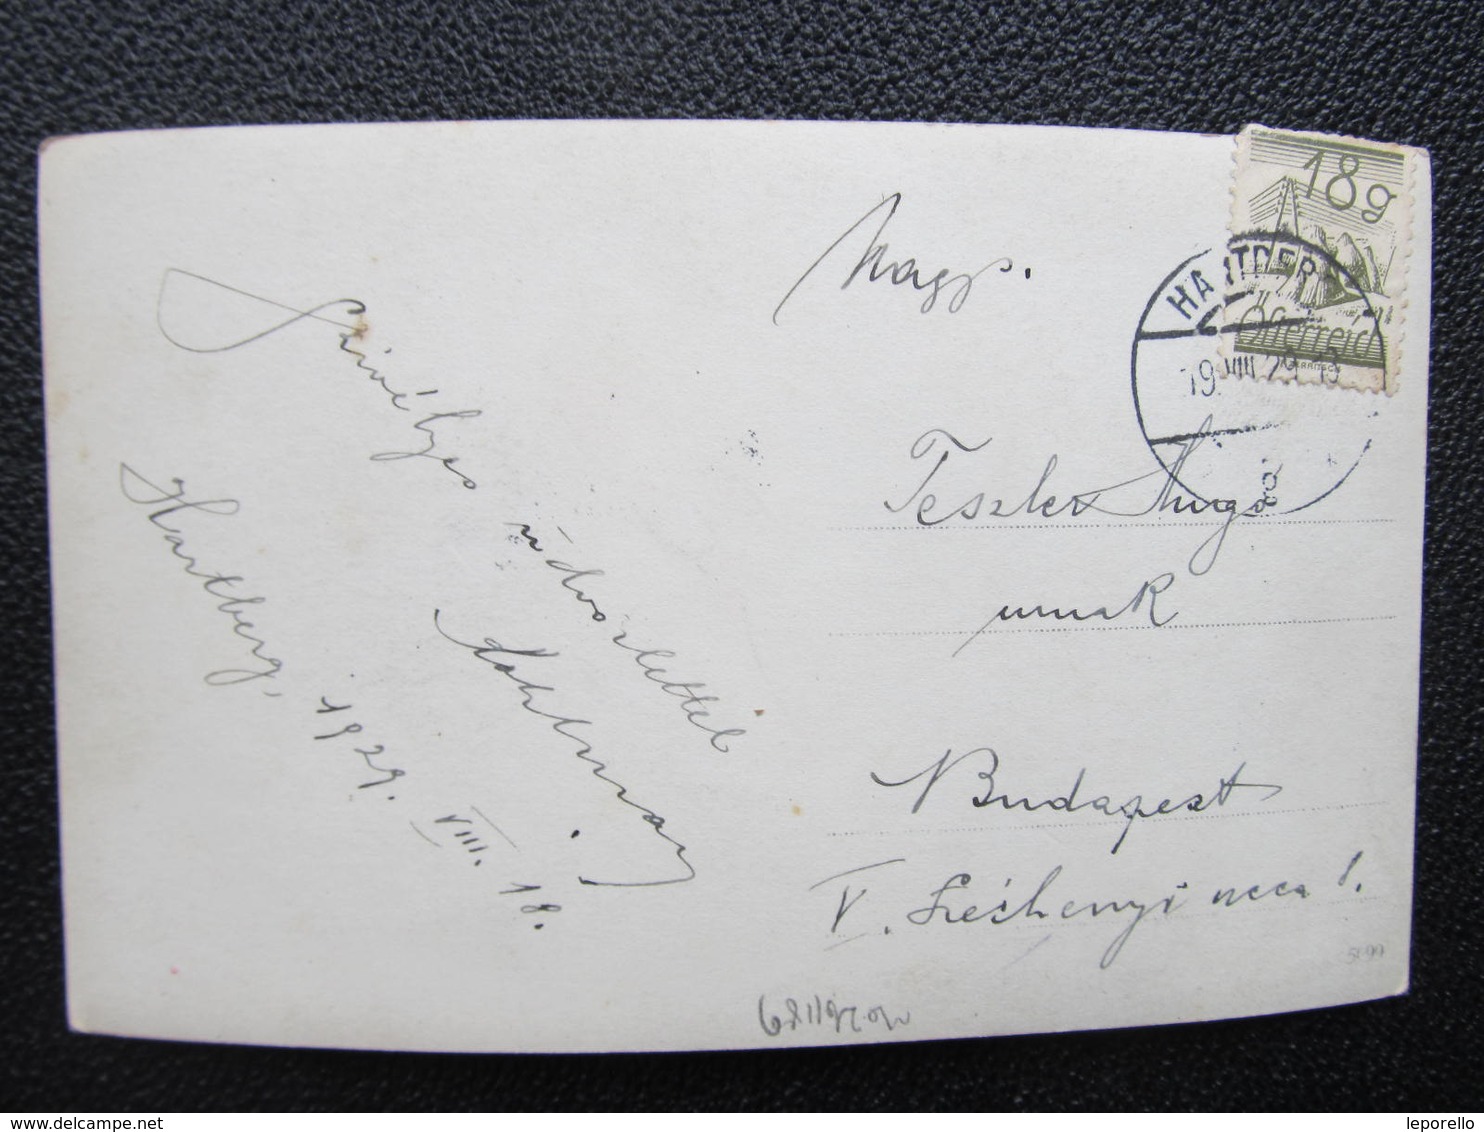 Szívélyes üdvözlettel
Hartberg, 1929. VIII. 18.
Nagys.
Teszler Hugó
urnak
Budapest
V. Széchenyi ucca 1.
18g
Österreich
HARTBERG
19.VIII.29
5699
delcampe.net
leporello